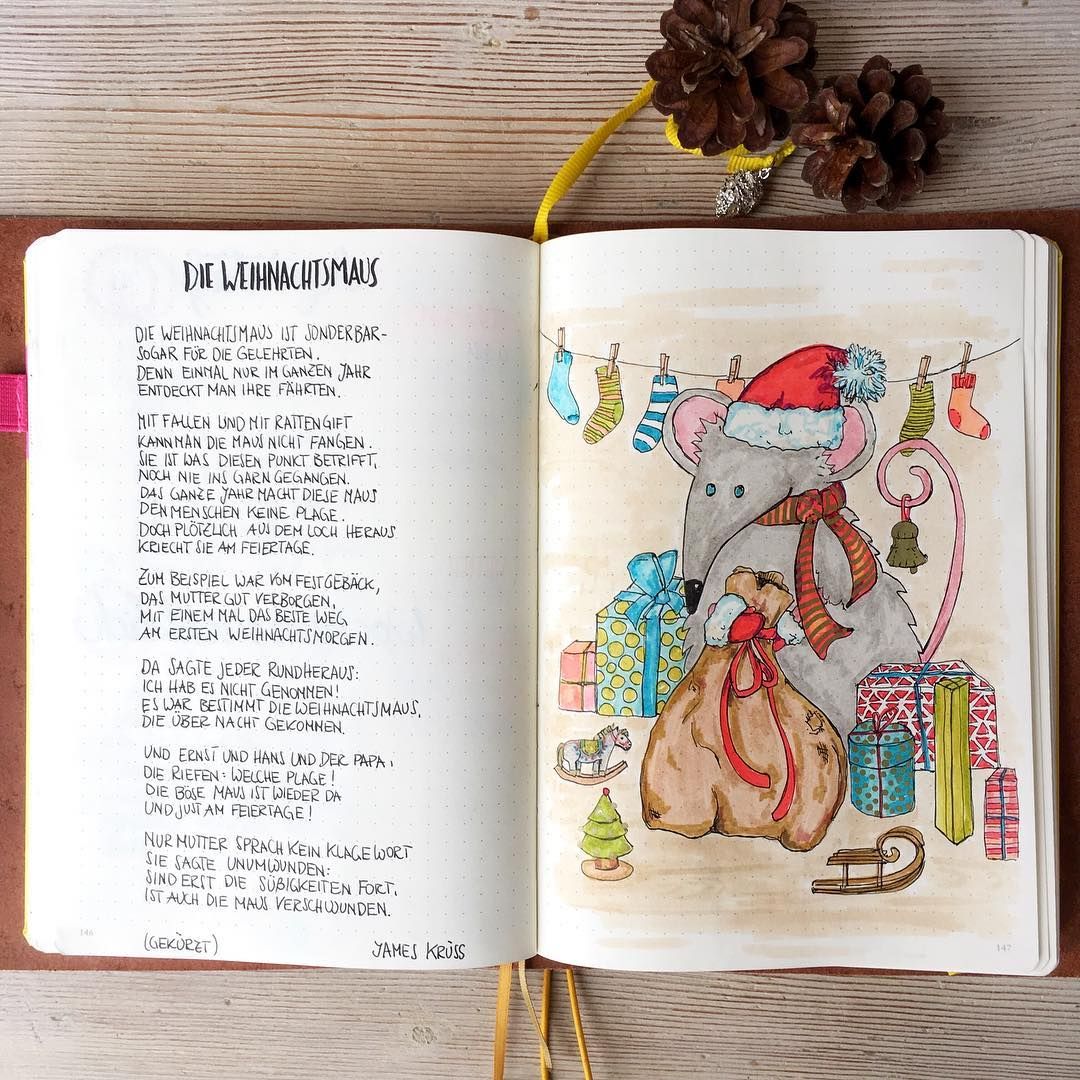 DIE WEIHNACHTSMAUS
DIE WEIHNACHTSMAUS IST SONDERBAR-
SOGAR FÜR DIE GELEHRTEN.
DENN EINMAL NUR IM GANZEN JAHR
ENTDECKT MAN IHRE FÄHRTEN.
MIT FALLEN UND MIT RATTENGIFT
KANN MAN DIE MAUS NICHT FANGEN.
SIE IST WAS DIESEN PUNKT BETRIFFT,
NOCH NIE INS GARN GEGANGEN.
DAS GANZE JAHR MACHT DIESE MAUS
DEN MENSCHEN KEINE PLAGE.
DOCH PLÖTZLICH AUS DEM LOCH HERAUS
KRIECHT SIE AM FEIERTAGE.
ZUM BEISPIEL WAR VOM FESTGEBÄCK,
DAS MUTTER GUT VERBORGEN,
MIT EINEM MAL DAS BESTE WEG
AM ERSTEN WEIHNACHTSMORGEN.
DA SAGTE JEDER RUNDHERAUS:
ICH HAB ES NICHT GENOMMEN!
ES WAR BESTIMMT DIE WEIHNACHTSMAUS,
DIE ÜBER NACHT GEKOMMEN.
UND ERNST UND HANS UND DER PAPA,
DIE RIEFEN: WELCHE PLAGE!
DIE BÖSE MAUS IST WIEDER DA
UND JUST AM FEIERTAGE!
NUR MUTTER SPRACH KEIN KLAGEWORT
SIE SAGTE UNUMWUNDEN:
SIND ERST DIE SÜßIGKEITEN FORT,
IST AUCH DIE MAUS VERSCHWUNDEN.
(GEKÜRZT) JAMES KRÜSS
146
147